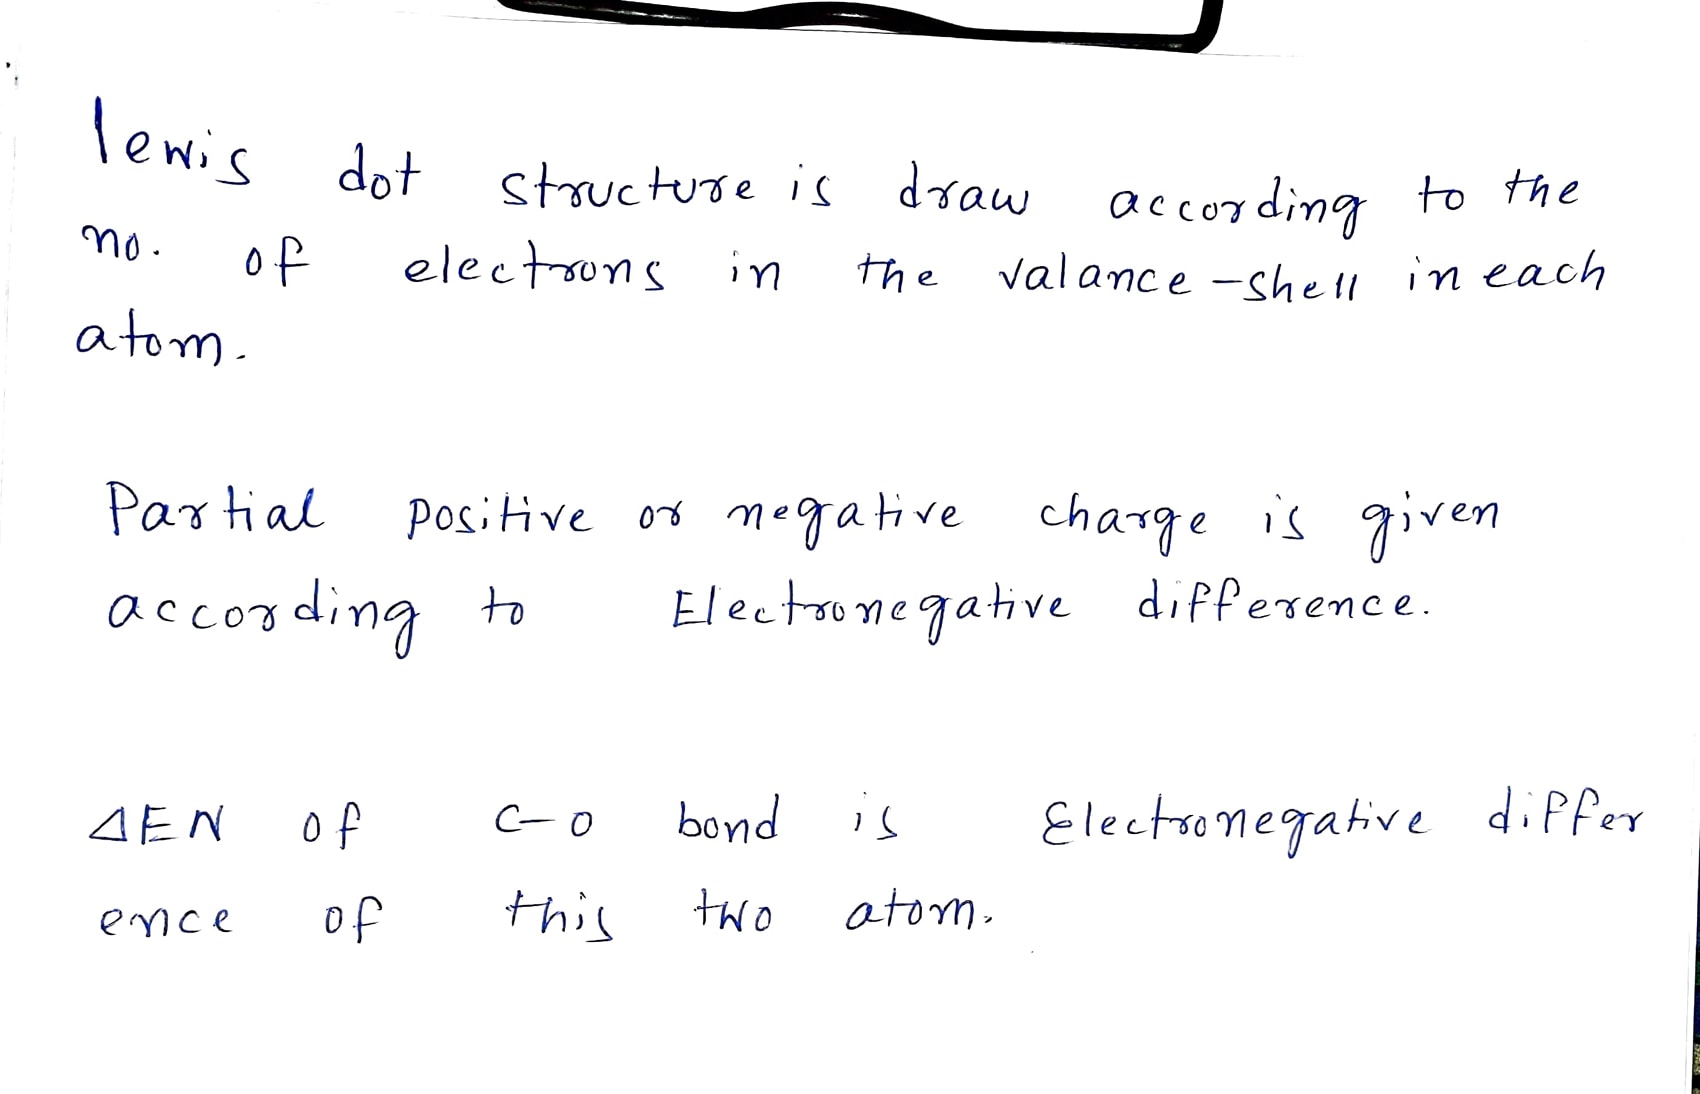 lewis dot structure is draw according to the
no. of electrons in the valance-shell in each
atom.
Partial positive or negative charge is given
according to Electronegative difference.
ΔEN of C-O bond is Electronegative differ
ence of this two atom.